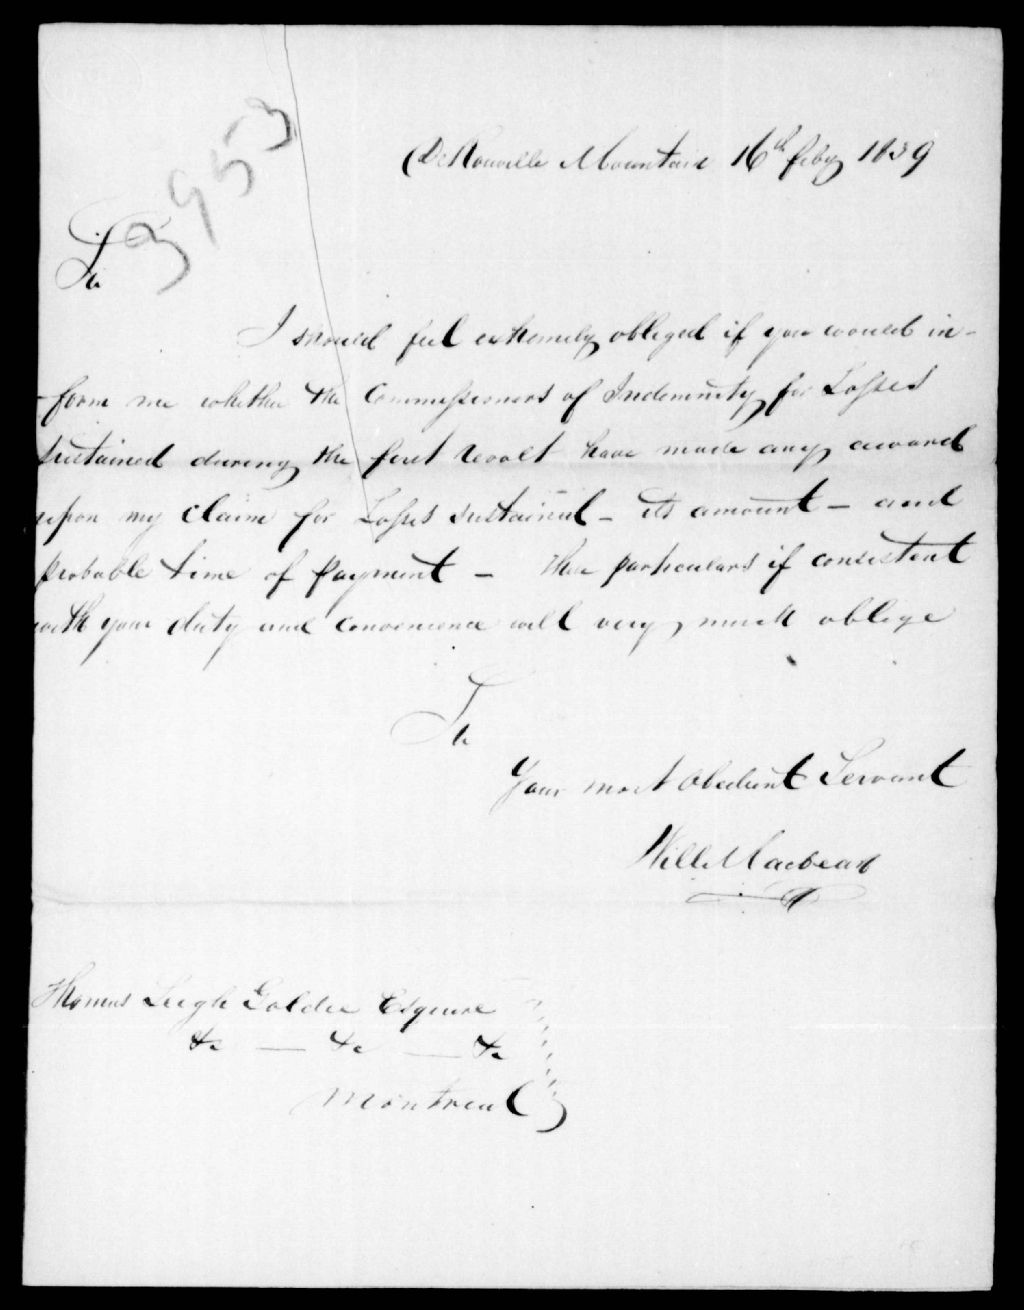 3953
(De Rouville Mountain 16th feby 1839
Sir
I should feel extremely obliged if you would in-
-form me whether the Commissioners of Indemnity for Losses
sustained during the first revolt have made any award
upon my claim for Losses sustained - its amount - and
probable time of payment - These particulars if consistent
with your duty and convenience will very much oblige
Sir
Your most Obedient Servant
Will Macbean
Thomas Leigh Goldie Esquire
&c — &c — &c
Montreal